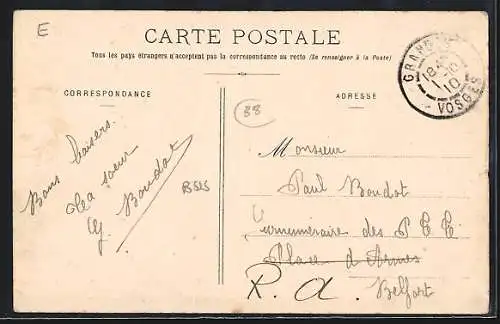 E
CARTE POSTALE
Tous les pays étrangers n'acceptent pas la correspondance au recto (Se renseigner à la Poste)
CORRESPONDANCE
ADRESSE
88
GRAND
VOSGES
18 45
1 - 10
10
Bons baisers.
ta soeur
Boudot
BS25
Monsieur
Paul Boudot
des P T T
Place d'Armes
R. A. Belfort